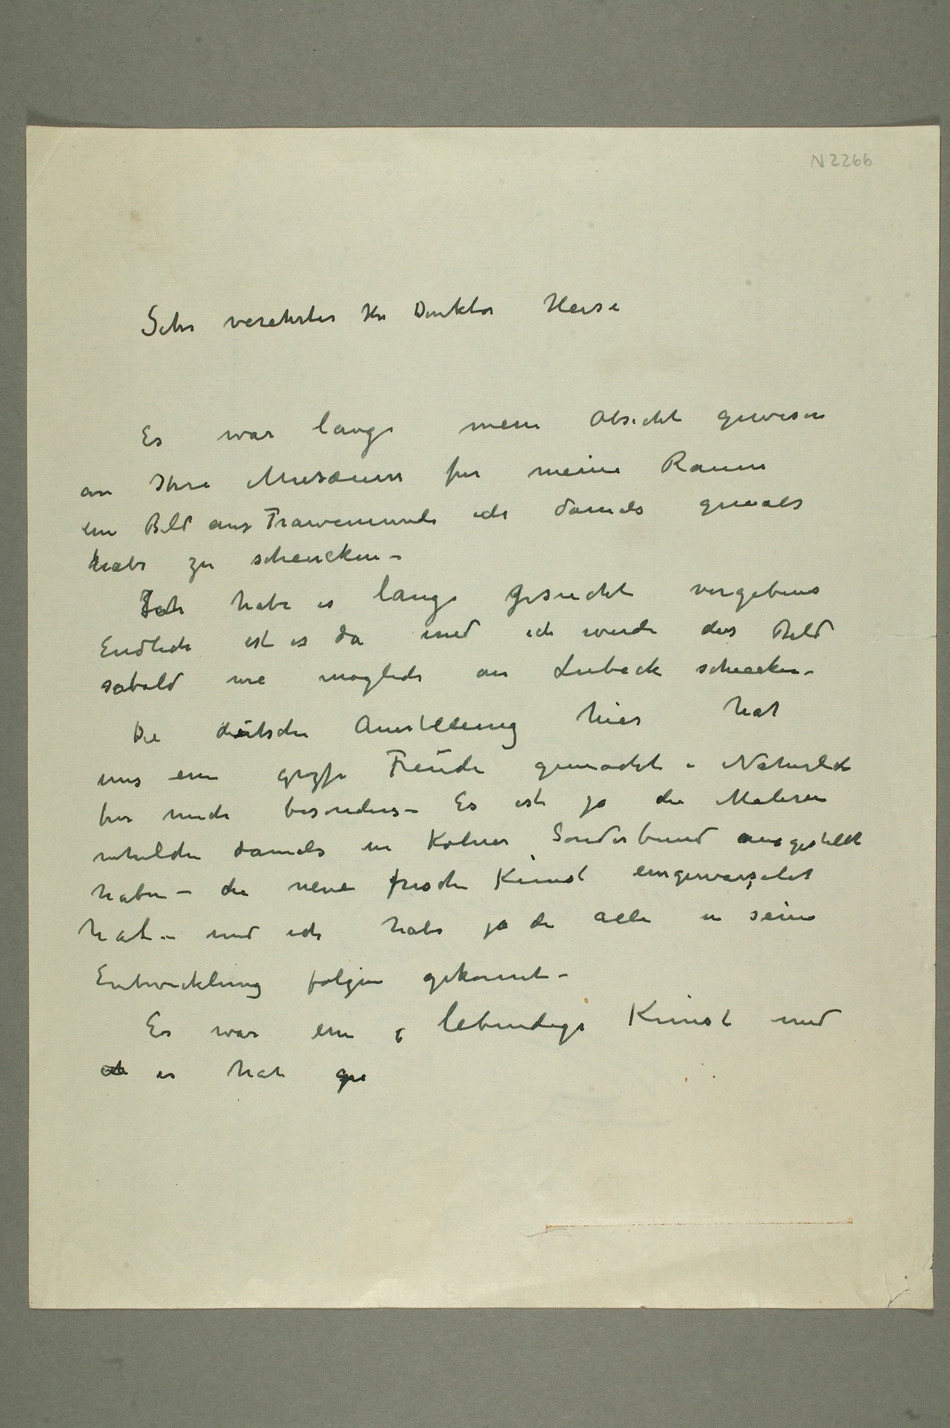 N 2266
Sehr verehrter Hr Direktor Heise
Es war lange meine Absicht gewesen
an Ihre Museum fur meine Raum
ein Bild aus Travemunde ich damals gemalt
habe zu schencken –
Ich habe es lange gesucht vergebens
Endlich ist es da und ich werde das Bild
sobald wie moglich an Lubeck schencken –
Die deutsche Ausstellung hier hat
uns ein grosse Freude gemacht – Naturlich
fur mich besonders – Es ist ja die Maleren
welche damals in Kolner Sonderbund ausgestellt
haben – die neue frische Kunst eingewurzelet
hat – und ich habe ja die alle in seine
Entwicklung folgen gekonnt –
Es war ein lebendige Kunst und
es hat ge